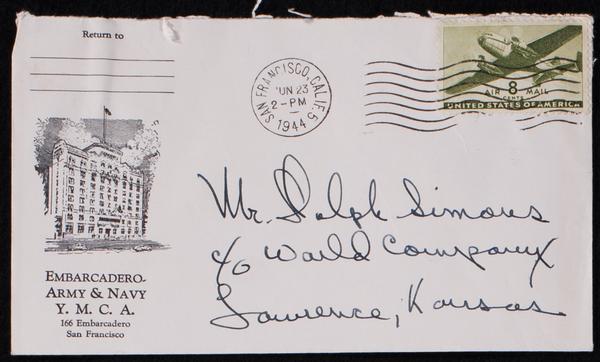 Return to
SAN FRANCISCO, CALIF. 5
JUN 23
2-PM
1944
AIR 8 MAIL
CENTS
UNITED STATES OF AMERICA
Mr. Dolph Simons
c/o World Company
Lawrence, Kansas
EMBARCADERO-
ARMY & NAVY
Y. M. C. A.
166 Embarcadero
San Francisco